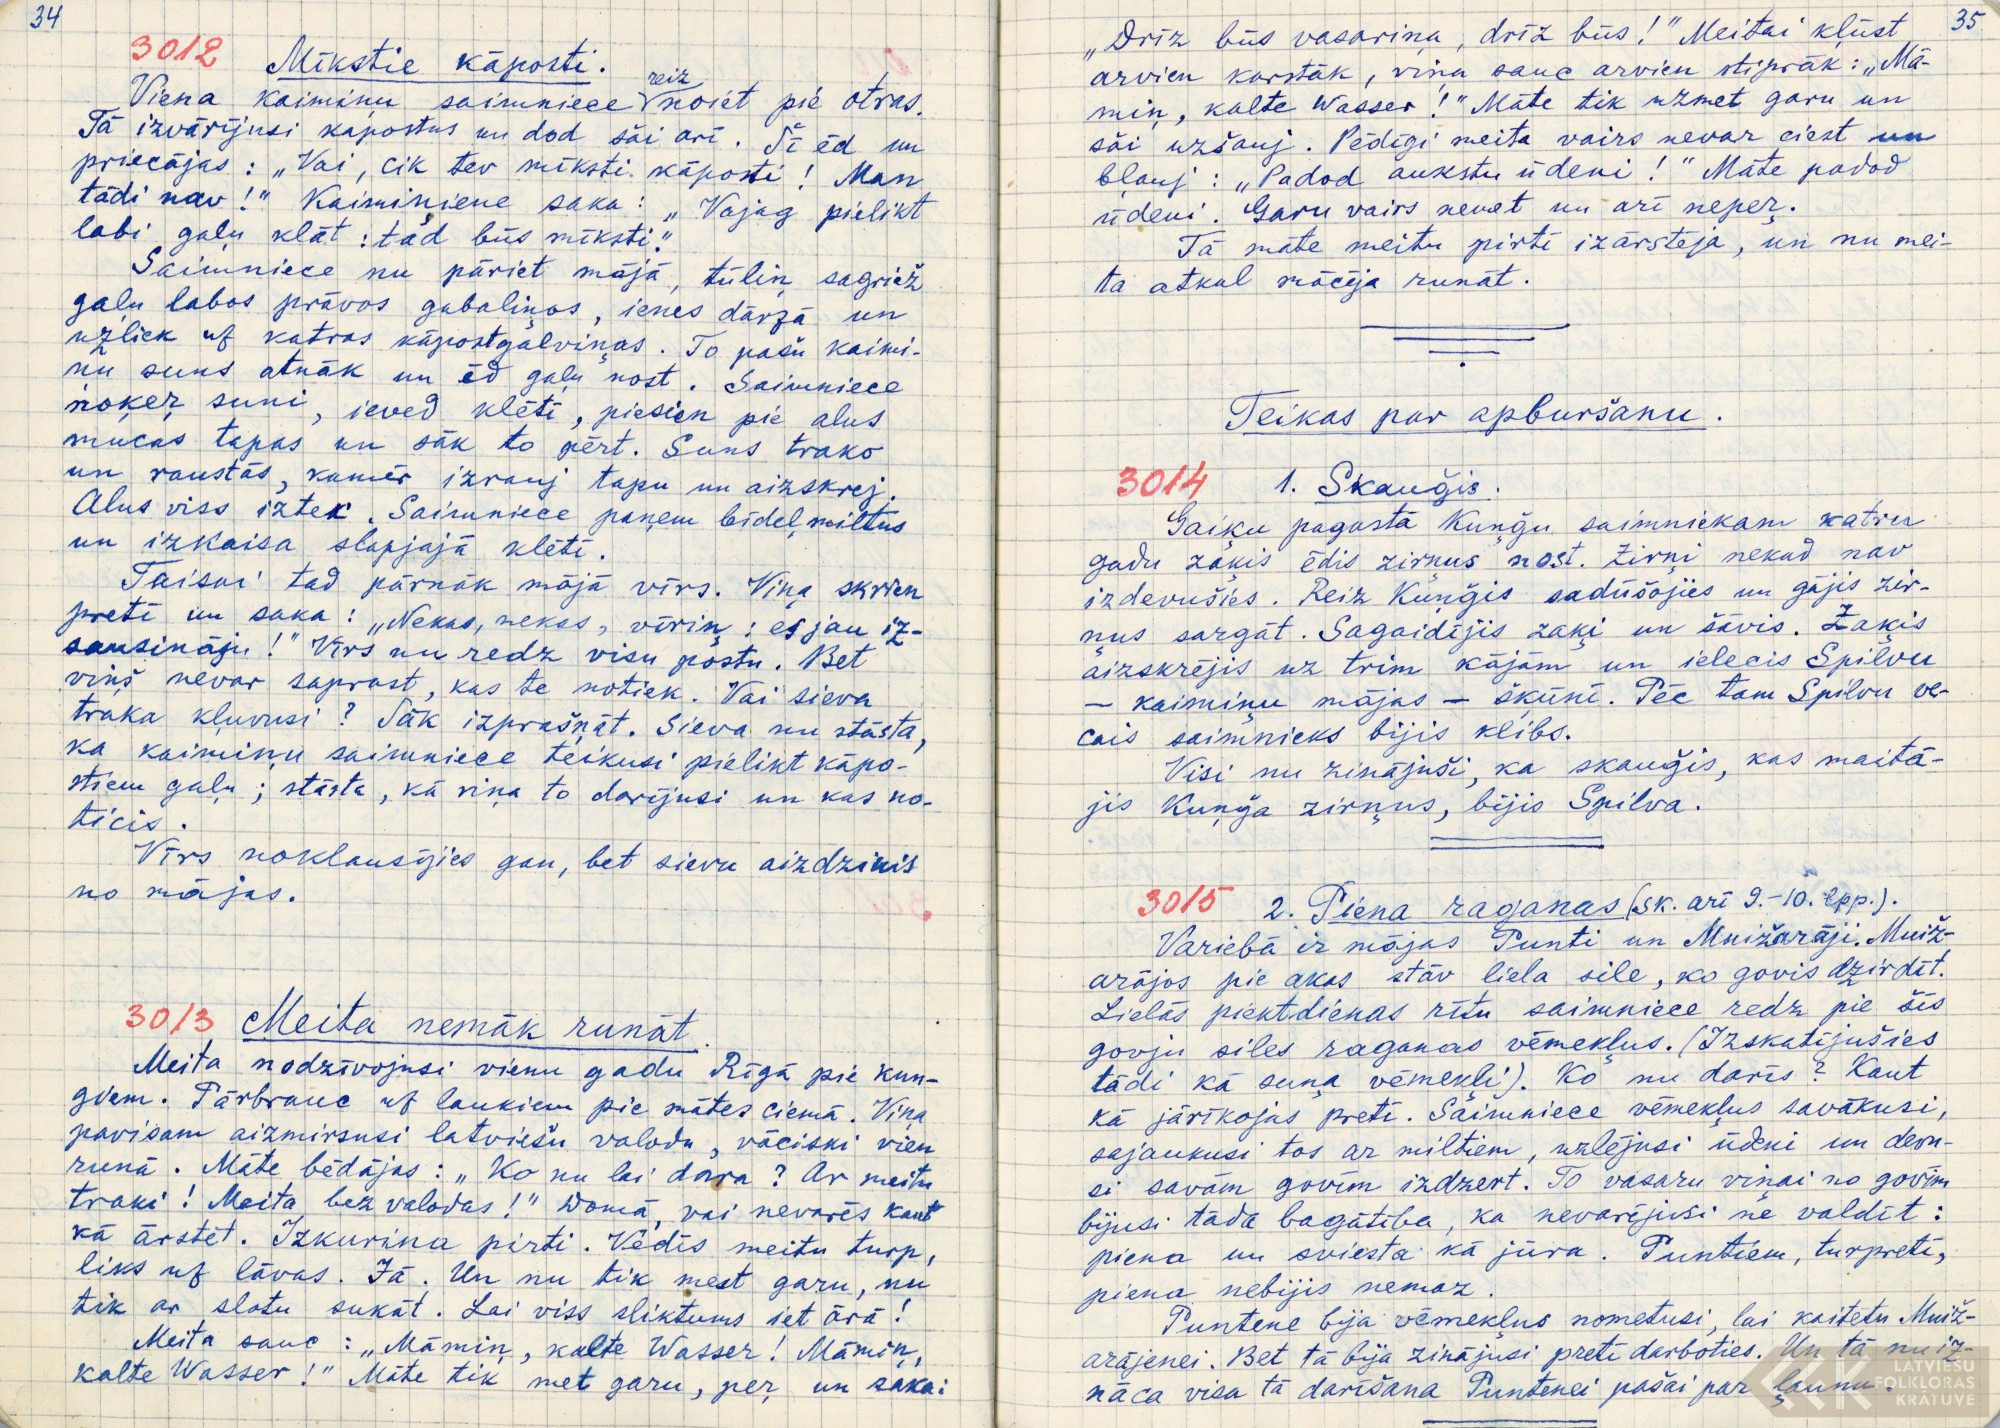 34
3012 Mīkstie kāposti.
Viena kaimiņu saimniece reiz noiet pie otras.
Tā izvārījusi kāpostus un dod šai arī. Šī ēd un
priecājas: „Vai, cik tev mīksti kāposti! Man
tādi nav!" Kaimiņiene saka: „Vajag pielikt
labi gaļu klāt: tad būs mīksti."
Saimniece nu pāriet mājā, tūliņ sagriež
gaļu labos prāvos gabaliņos, ienes dārzā un
uzliek uf katras kāpostgalviņas. To pašu kaimi-
ņu suns atnāk un ēd gaļu nost. Saimniece
noķeŗ suni, ieved klētī, piesien pie alus
mucas tapas un sāk to pērt. Suns trako
un raustās, kamēr izrauj tapu un aizskrej.
Alus viss iztek. Saimniece paņem bīdeļmiltus
un izkaisa slapjajā klētī.
Taisni tad pārnāk mājā vīrs. Viņa skrien
pretī un saka: „Nekas, nekas, vīriņ: es jau iz-
sausināju!" Vīrs nu redz visu postu. Bet
viņš nevar saprast, kas te notiek. Vai sieva
traka kļuvusi? Sāk izprašņāt. Sieva nu stāsta,
ka kaimiņu saimniece teikusi pielikt kāpo-
stiem gaļu; stāsta, kā viņa to darījusi un kas no-
ticis.
Vīrs noklausījies gan, bet sievu aizdzinis
no mājas.
3013 Meita nemāk runāt.
Meita nodzīvojusi vienu gadu Rīgā pie kun-
giem. Pārbrauc uf laukiem pie mātes ciemā. Viņa
pavisam aizmirsusi latviešu valodu, vāciski vien
runā. Māte bēdājas: „Ko nu lai dara? Ar meitu
traki! Meita bez valodas!" Domā, vai nevarēs kaut
kā ārstēt. Izkurina pirti. Vēdīs meitu turp,
liks uf lāvas. Jā. Un nu tik mest garu, nu
tik ar slotu sukāt. Lai viss sliktums iet ārā!
Meita sauc: „Māmiņ, kalte Wasser! Māmiņ,
kalte Wasser!" Māte tik met garu, peŗ un saka:
35
„Drīz būs vasariņa, drīz būs!" Meitai kļūst
arvien karstāk, viņa sauc arvien stiprāk: „Mā-
miņ, kalte Wasser!" Māte tik uzmet garu un
šai uzšauj. Pēdīgi meita vairs nevar ciest un
bļauj: „Padod aukstu ūdeni!" Māte padod
ūdeni. Garu vairs nemet un arī nepeŗ.
Tā māte meitu pirtī izārstēja, un nu mei-
ta atkal mācēja runāt.
Teikas par apburšanu.
3014 1. Skauģis.
Gaiķu pagastā Kuņģu saimniekam katru
gadu zaķis ēdis zirņus nost. Zirņi nekad nav
izdevušies. Reiz Kuņģis sadūšojies un gājis zir-
ņus sargāt. Sagaidījis zaķi un šāvis. Zaķis
aizskrējis uz trim kājām un ielecis Spilvu
– kaimiņu mājas – šķūnī. Pēc tam Spilvu ve-
cais saimnieks bijis klibs.
Visi nu zinājuši, ka skauģis, kas maitā-
jis Kuņģa zirņus, bijis Spilva.
3015 2. Piena raganas (sk. arī 9.–10. lpp.).
Variebā ir mājas Punti un Muižarāji. Muiž-
arājos pie akas stāv liela sile, ko govis dzirdīt.
Lielās piektdienas rītu saimniece redz pie šīs
govju siles raganas vēmekļus. (Izskatījušies
tādi kā suņa vēmekļi). Ko nu darīs? Kaut
kā jārīkojas pretī. Saimniece vēmekļus savākusi,
sajaukusi tos ar miltiem, uzlējusi ūdeni un devu-
si savām govīm izdzert. To vasaru viņai no govīm
bijusi tāda bagātība, ka nevarējusi ne valdīt:
piena un sviesta kā jūra. Puntiem, turpretī,
piena nebijis nemaz.
Puntene bija vēmekļus nometusi, lai kaitētu Muiž-
arājenei. Bet tā bija zinājusi pretī darboties. Un tā nu iz-
nāca visa tā darīšana Puntenei pašai par ļaunu.
LATVIEŠU
FOLKLORAS
KRĀTUVE